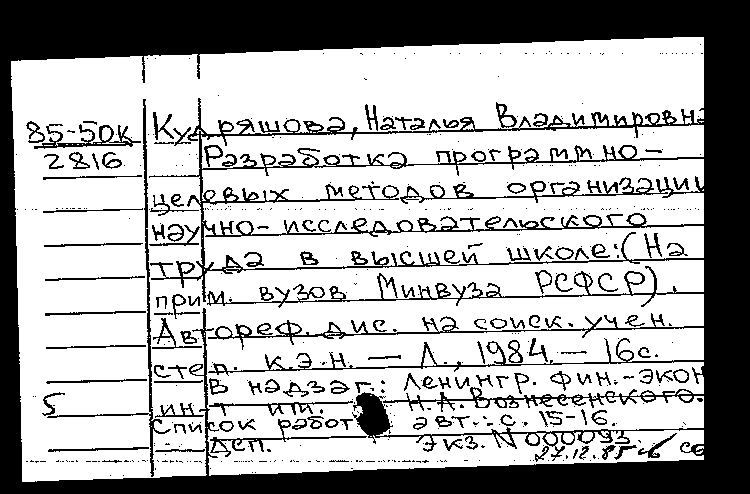 85-50К
2816
Кудряшова, Наталья Владимировна
Разработка программно-
целевых методов организации
научно-исследовательского
труда в высшей школе: (На
прим. вузов Минвуза РСФСР).
Автореф. дис. на соиск. учен.
степ. к.э.н. — Л., 1984. — 16с.
В надзаг.: Ленингр. фин.-экон
5
ин-т им. Н.А. Вознесенского.
Список работ авт.: с. 15-16.
Дсп. Экз. N 000093
27.12.85